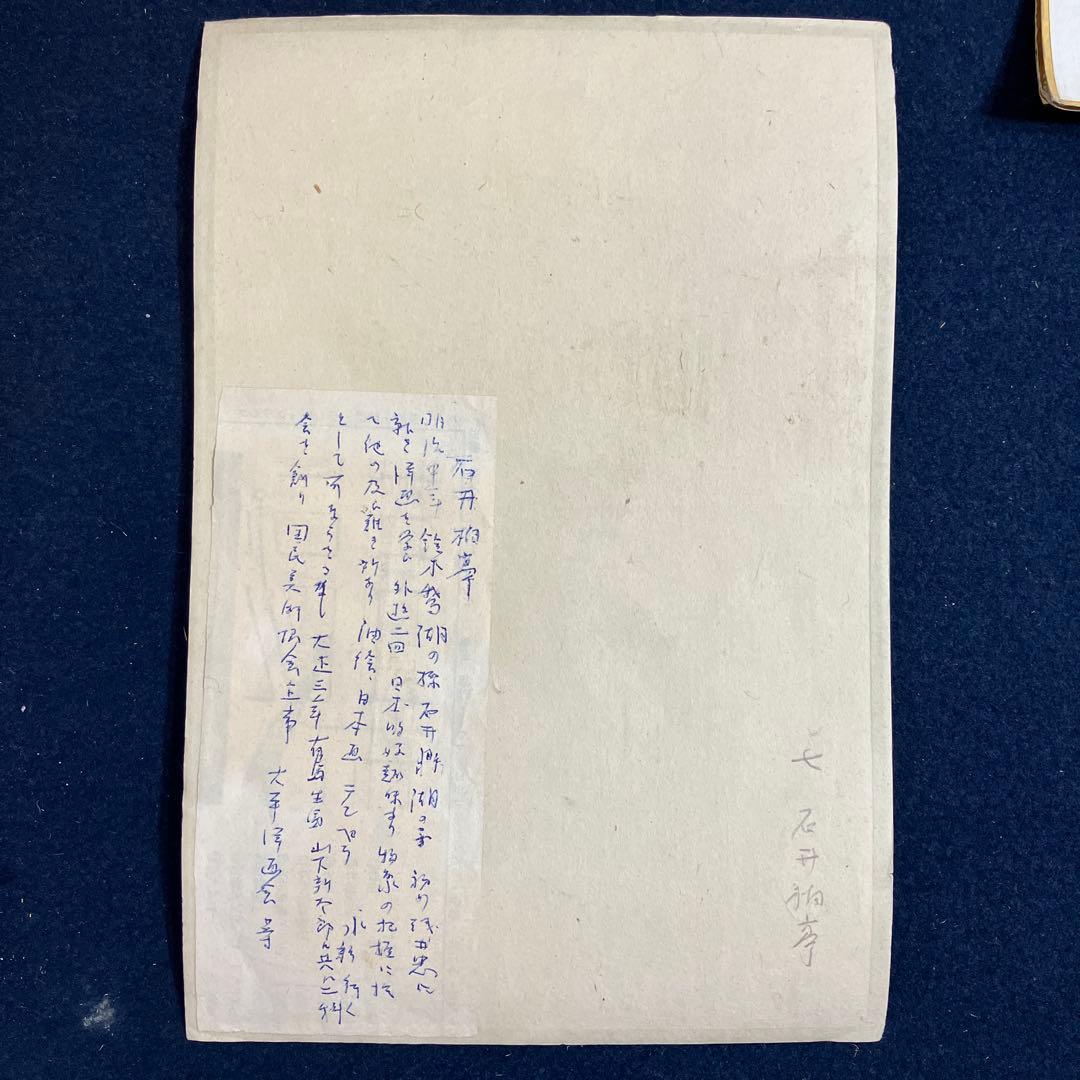 七 石井柏亭
石井柏亭
明治十五年 鈴木鵞湖の孫 石井鼎湖の子 初め浅井忠に
就き洋画を学ぶ 外遊二回 日本的な趣味あり 物象の把握に於
て他の及び難き所あり 油絵、日本画 テンペラ 水彩 行く
として可ならざる無し 大正三年有島生馬 山下新太郎らと共に二科
会を創り 国民美術協会 大平洋画会 等